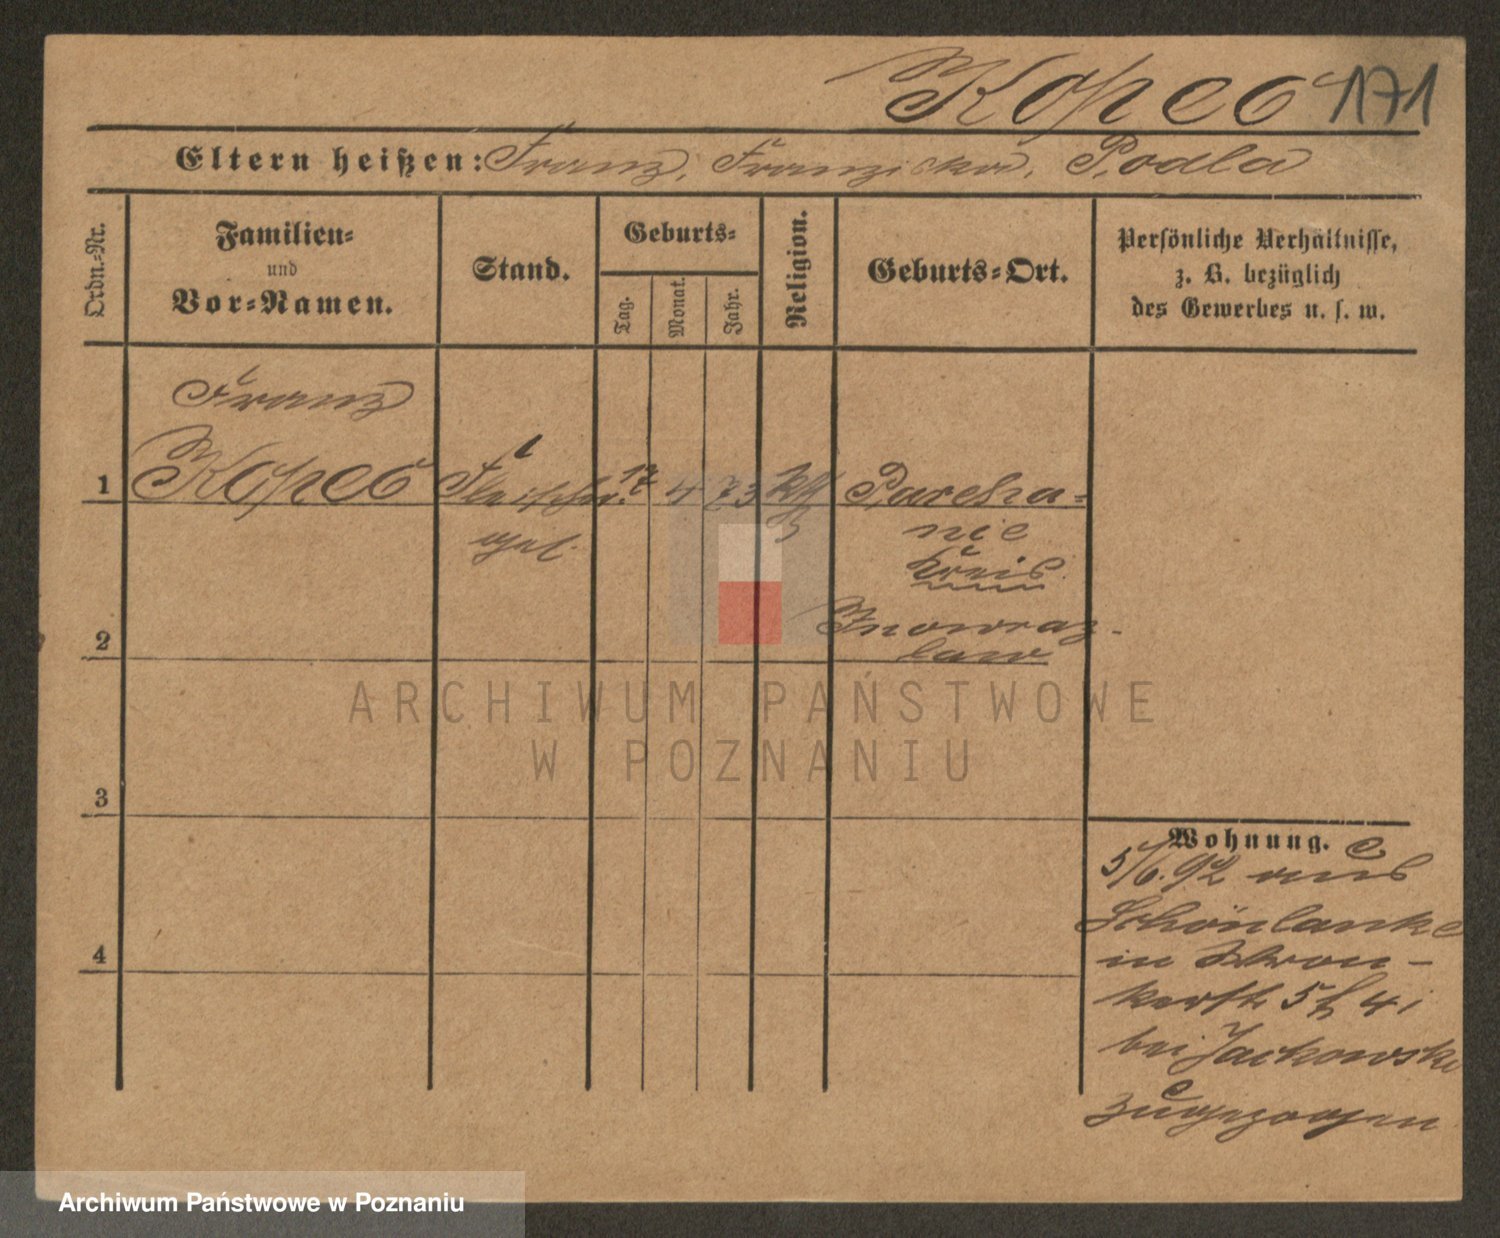 Kopec 171
Eltern heißen: Franz, Franziska, Podla
Ordn.-Nr.
Familien-
und
Vor-Namen.
Stand.
Geburts-
Tag.
Monat.
Jahr.
Religion.
Geburts-Ort.
Persönliche Verhältnisse,
z. B. bezüglich
des Gewerbes u. s. w.
Franz
1 Kopec Fleischer 17 4 73 kth Parcha-
gel. nie
Kreis
Inowraz-
law
2
3
4
Wohnung.
5/6. 92 aus
Schönlanke
in Wron-
kerstr 5 H 4 i
bei Jackowski
zugezogen
ARCHIWUM PAŃSTWOWE
W POZNANIU
Archiwum Państwowe w Poznaniu